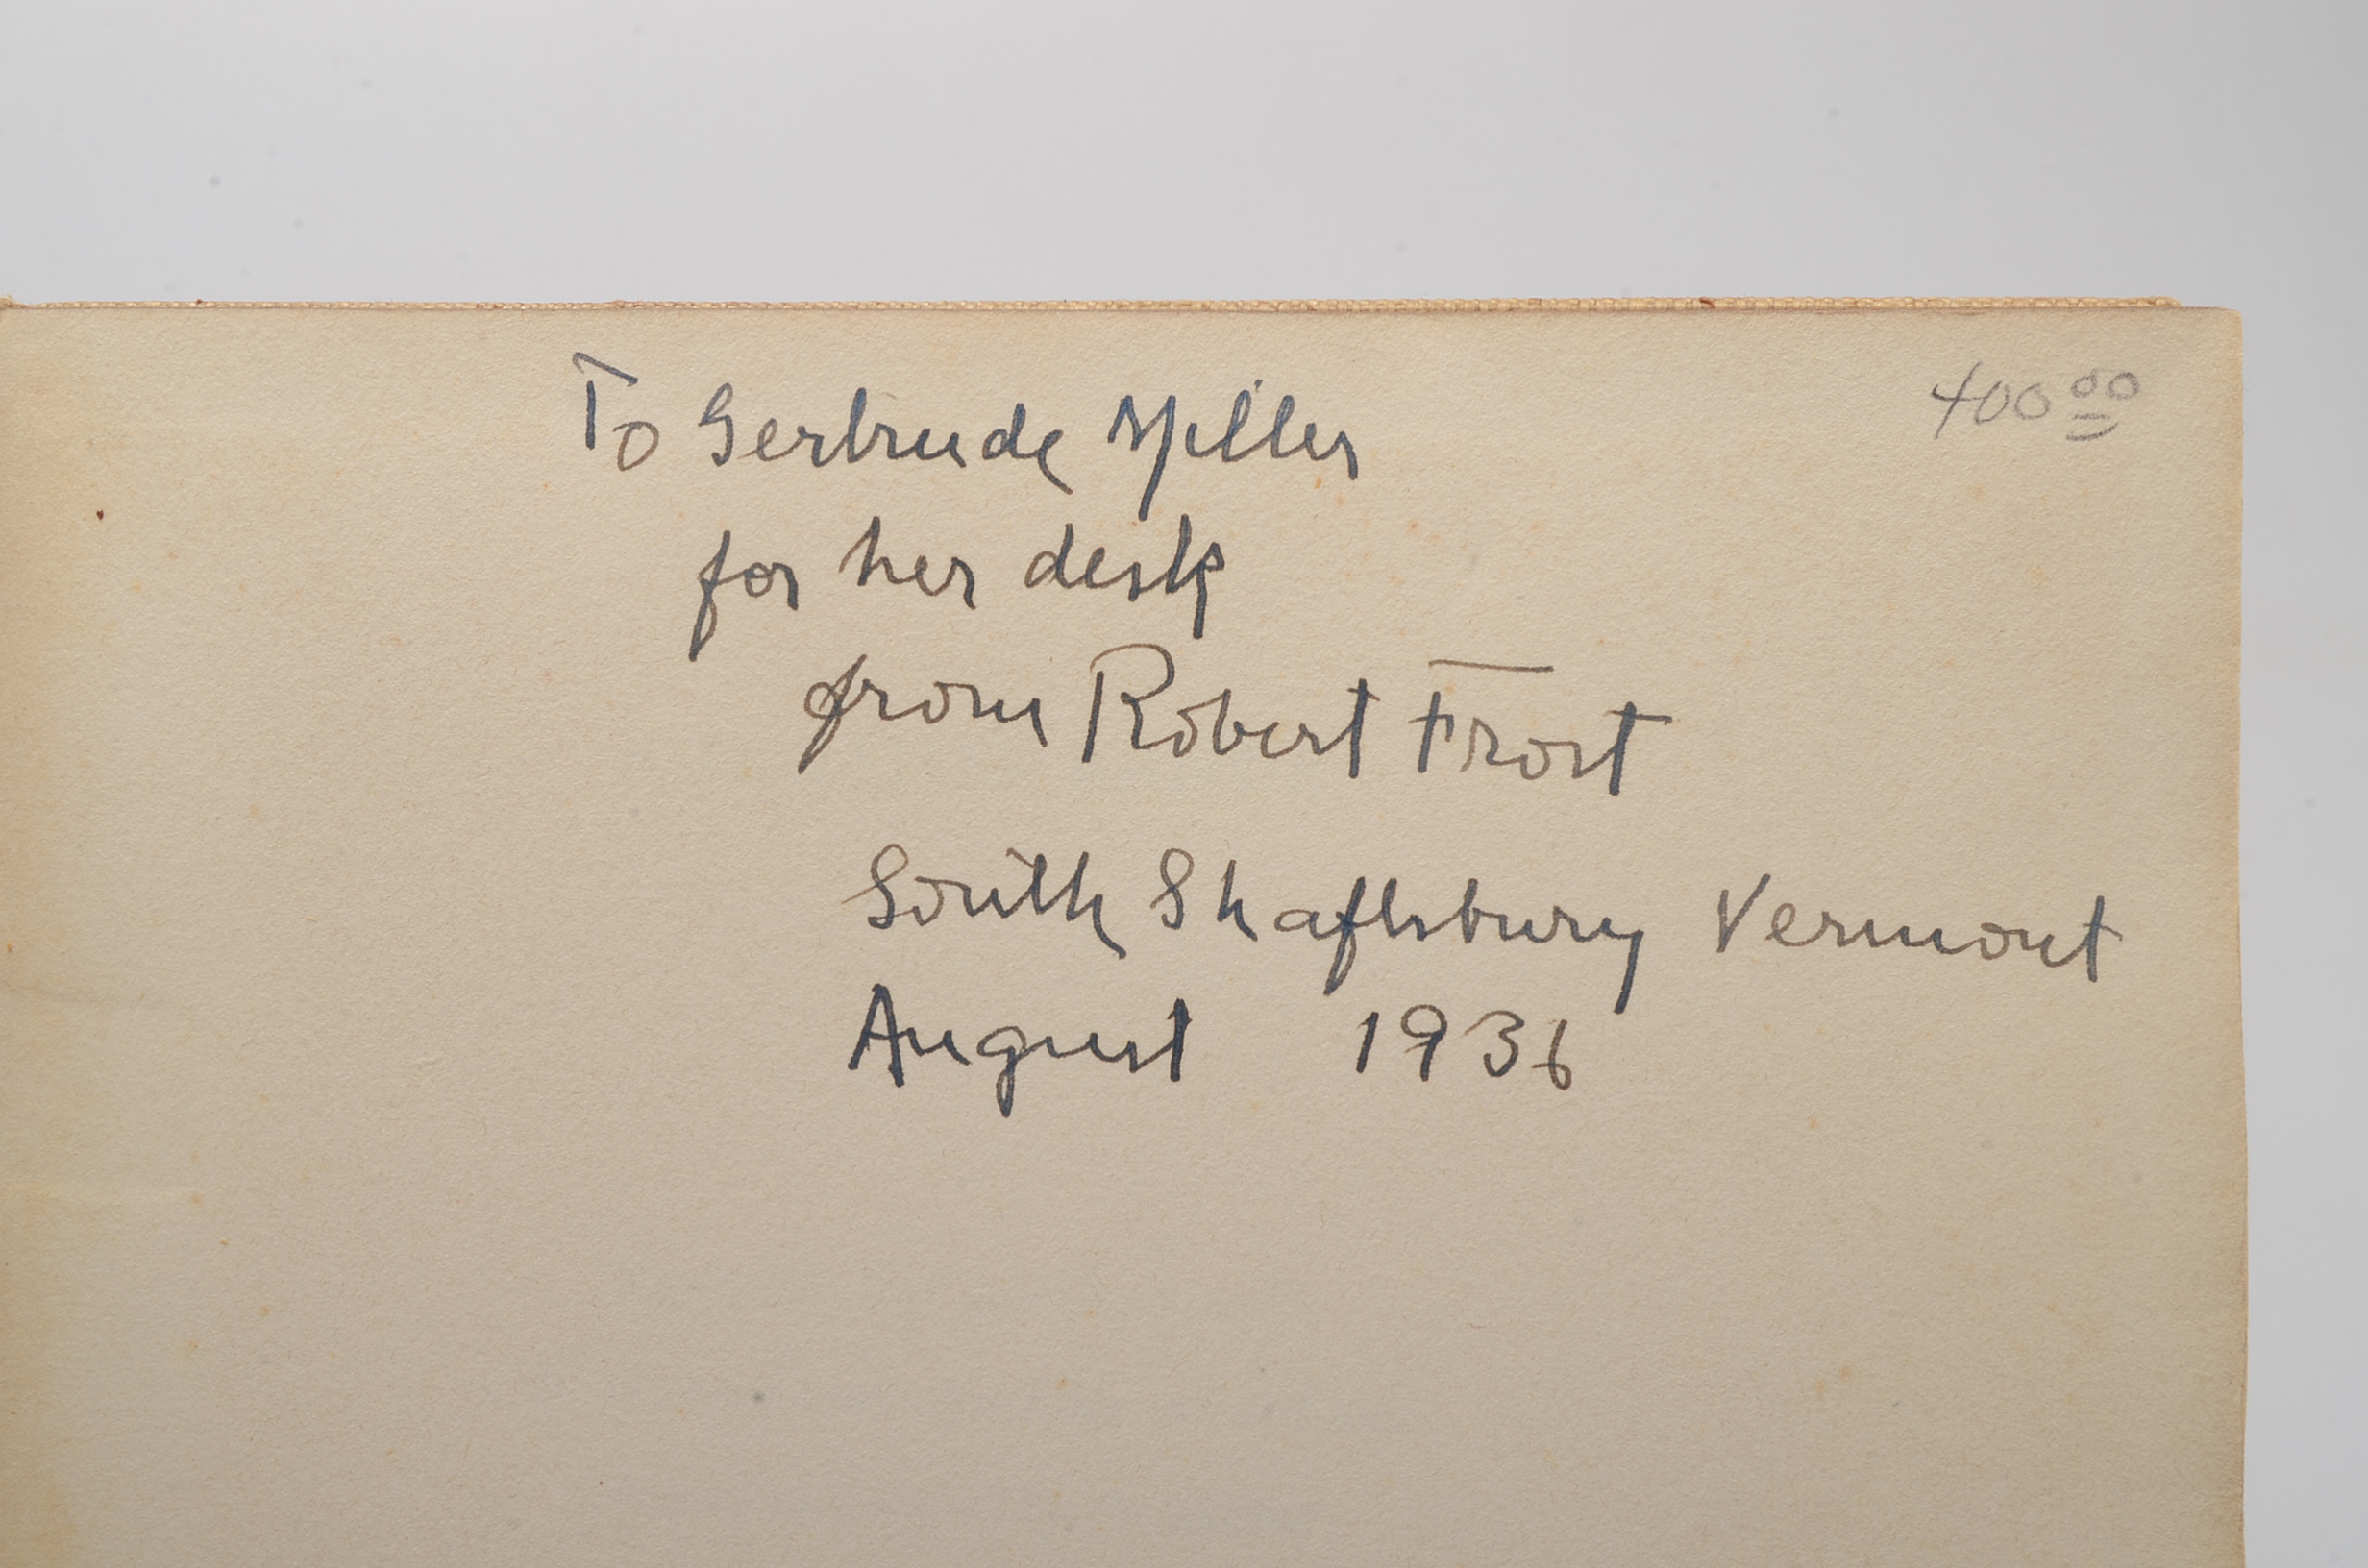 To Gertrude Miller
400 00
for her desk
from Robert Frost
South Shaftsbury Vermont
August 1936